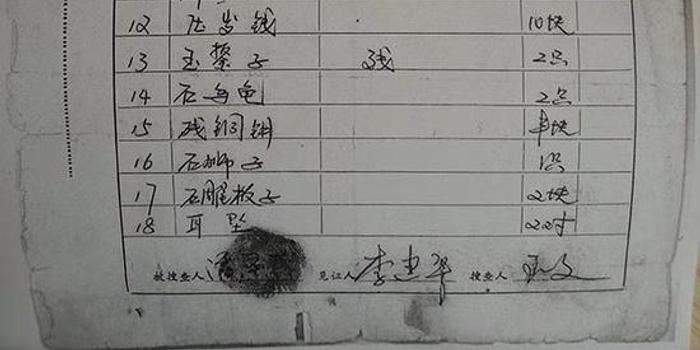 12 压岁钱 10块
13 玉鐢子 残 2只
14 石乌龟 2只
15 残铜钥 块
16 石狮子 1只
17 石雕板子 2块
18 耳坠 2对
被搜查人 见证人 李建军 搜查人